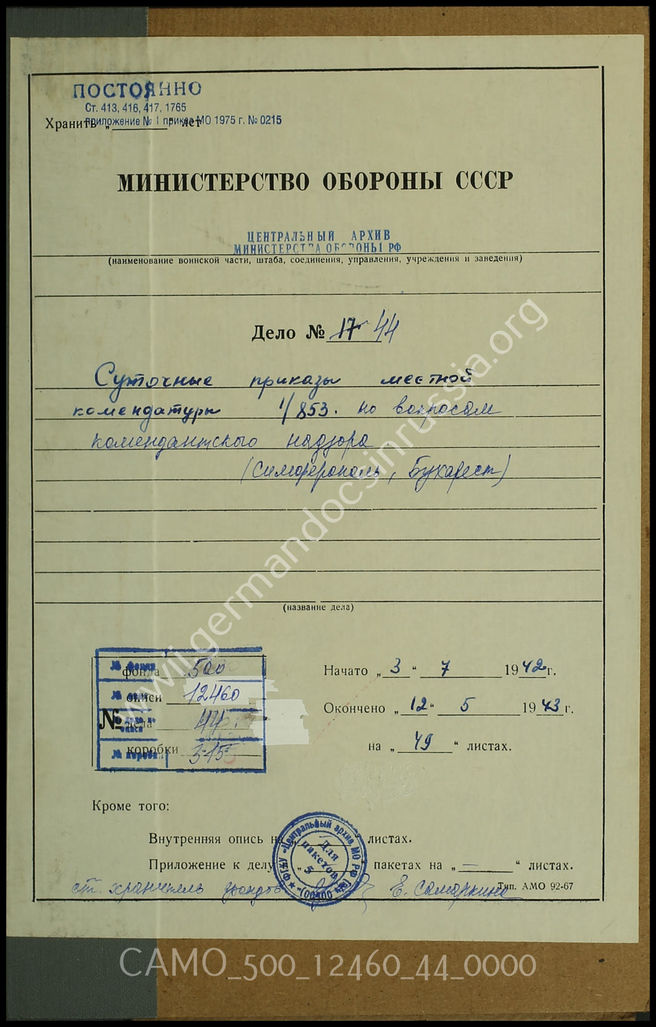 ПОСТОЯННО
Ст. 413, 416, 417, 1765
Хранить „ “ лет
приложение № 1 приказ МО 1975 г. № 0215
МИНИСТЕРСТВО ОБОРОНЫ СССР
ЦЕНТРАЛЬНЫЙ АРХИВ
МИНИСТЕРСТВА ОБОРОНЫ РФ
(наименование воинской части, штаба, соединения, управления, учреждения и заведения)
Дело № 17 44
Суточные приказы местной
комендатуры 1/853. по вопросам
комендантского надзора
(Симферополь, Бухарест)
(название дела)
№ фонда 500
описи 12460
дела 44
коробки 315
Начато „ 3 “ 7 1942 г.
Окончено „ 12 “ 5 1943 г.
на „ 49 “ листах.
Кроме того:
Внутренняя опись на листах.
Приложение к делу пакетах на „ — “ листах.
ФГКУ «Центральный архив МО РФ»
Для пакетов 5
ст. хранитель фондов Е. Самаркина
Тип. АМО 92-67
www.germandocsinrussia.org
CAMO_500_12460_44_0000